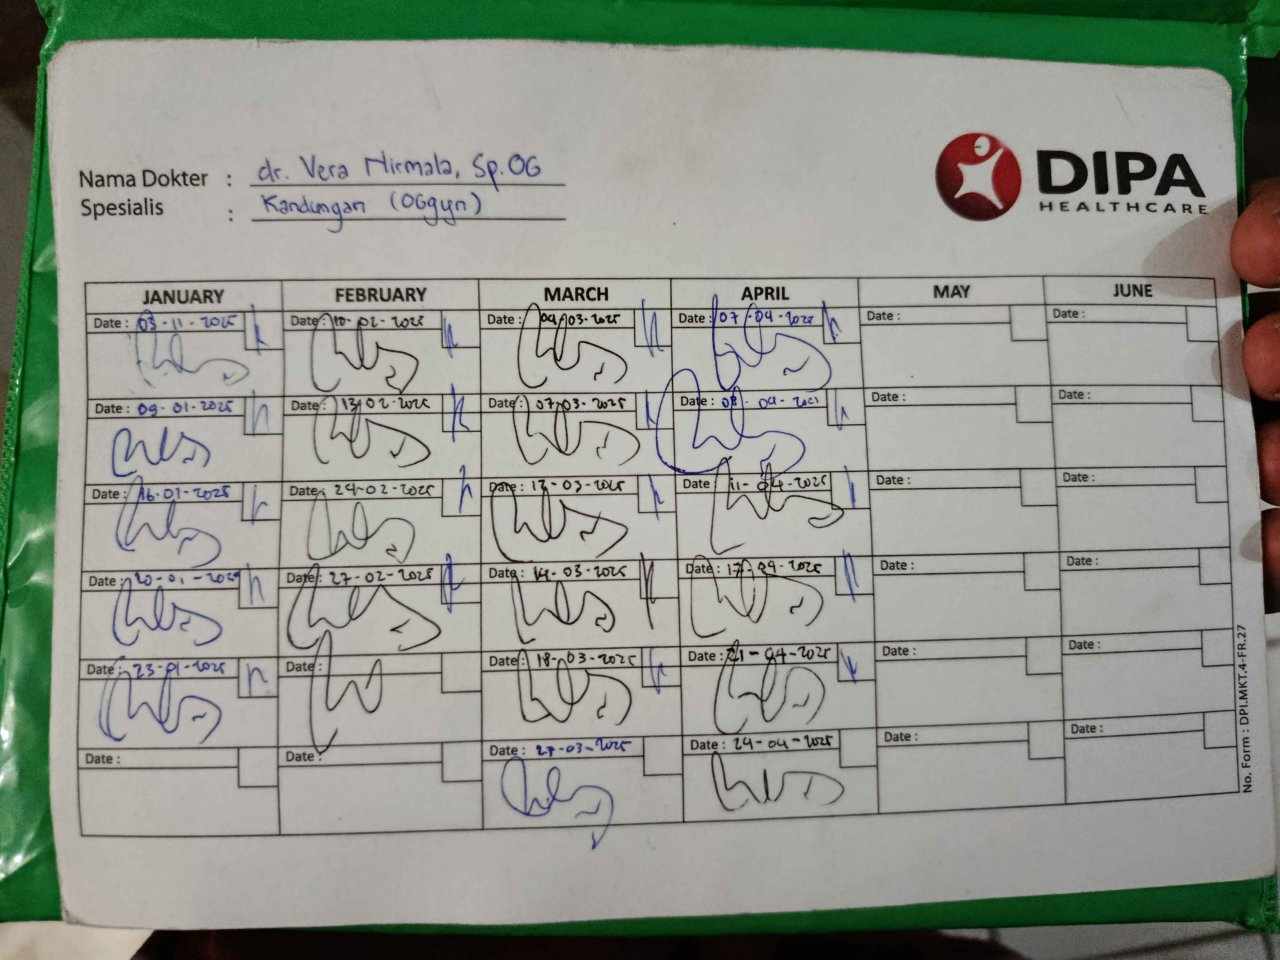 Nama Dokter : dr. Vera Nirmala, Sp.OG
Spesialis : Kandungan (OGgyn)
DIPA
HEALTHCARE
JANUARY FEBRUARY MARCH APRIL MAY JUNE
Date : 03-11-2025 Date : 10-02-2025 Date : 04-03-2025 Date : 07-04-2025 Date : Date :
Date : 09-01-2025 Date : 13-02-2025 Date : 07-03-2025 Date : 08-04-2025 Date : Date :
Date : 16-01-2025 Date : 24-02-2025 Date : 12-03-2025 Date : 11-04-2025 Date : Date :
Date : 20-01-2025 Date : 27-02-2025 Date : 14-03-2025 Date : 17-04-2025 Date : Date :
Date : 23-01-2025 Date : Date : 18-03-2025 Date : 21-04-2025 Date : Date :
Date : Date : Date : 27-03-2025 Date : 24-04-2025 Date : Date :
No. Form : DPI.MKT.4-FR.27